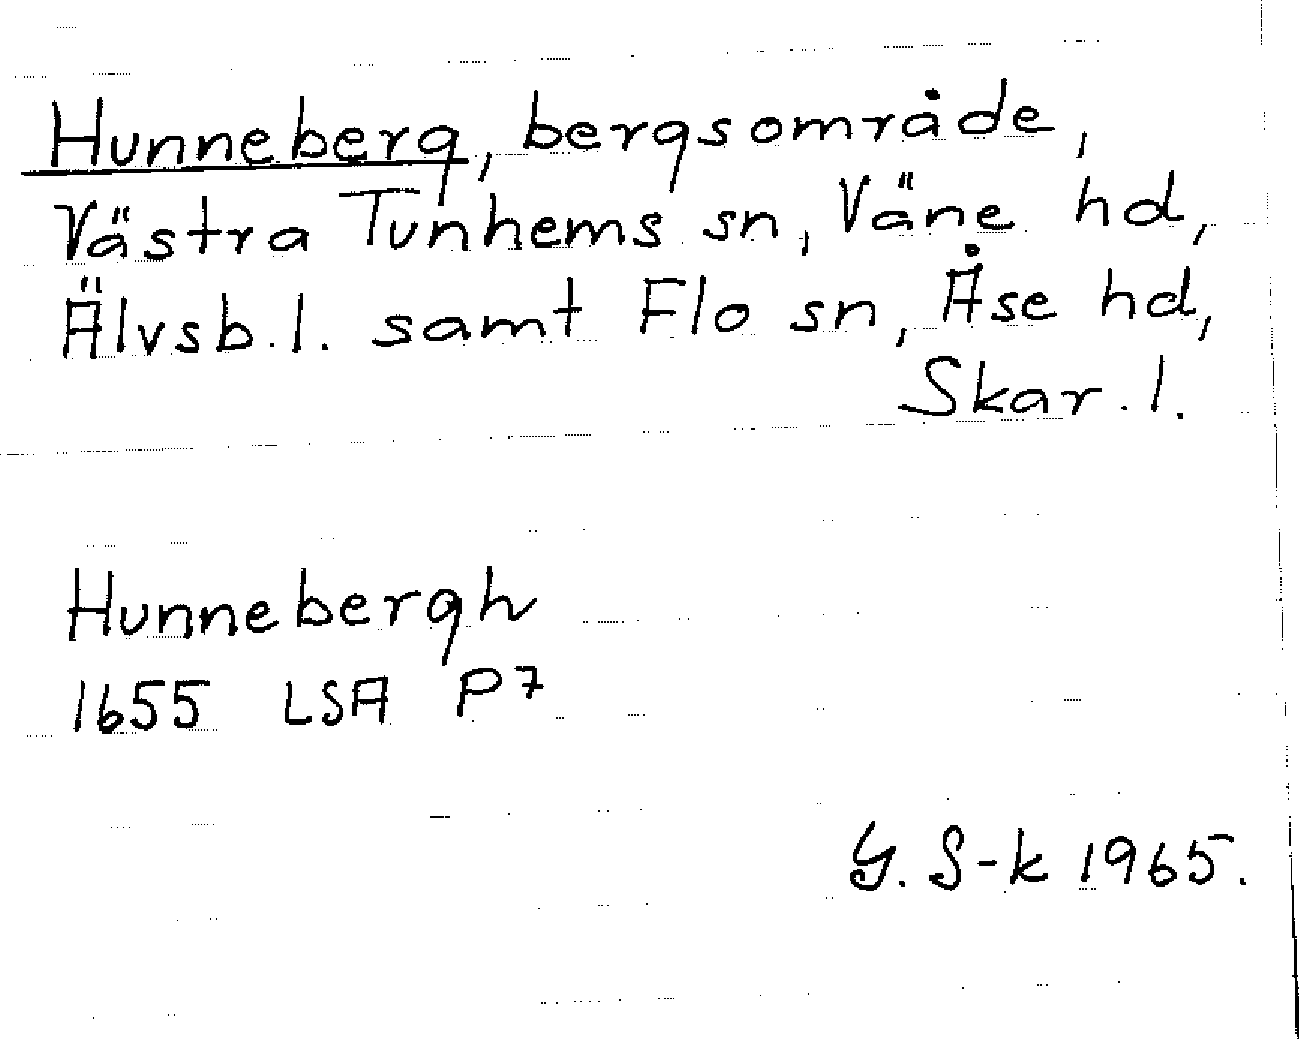 Hunneberg, bergsområde,
Västra Tunhems sn, Väne hd,
Älvsb. l. samt Flo sn, Åse hd,
Skar. l.
Hunnebergh
1655 LSA P7
G. S-k 1965.